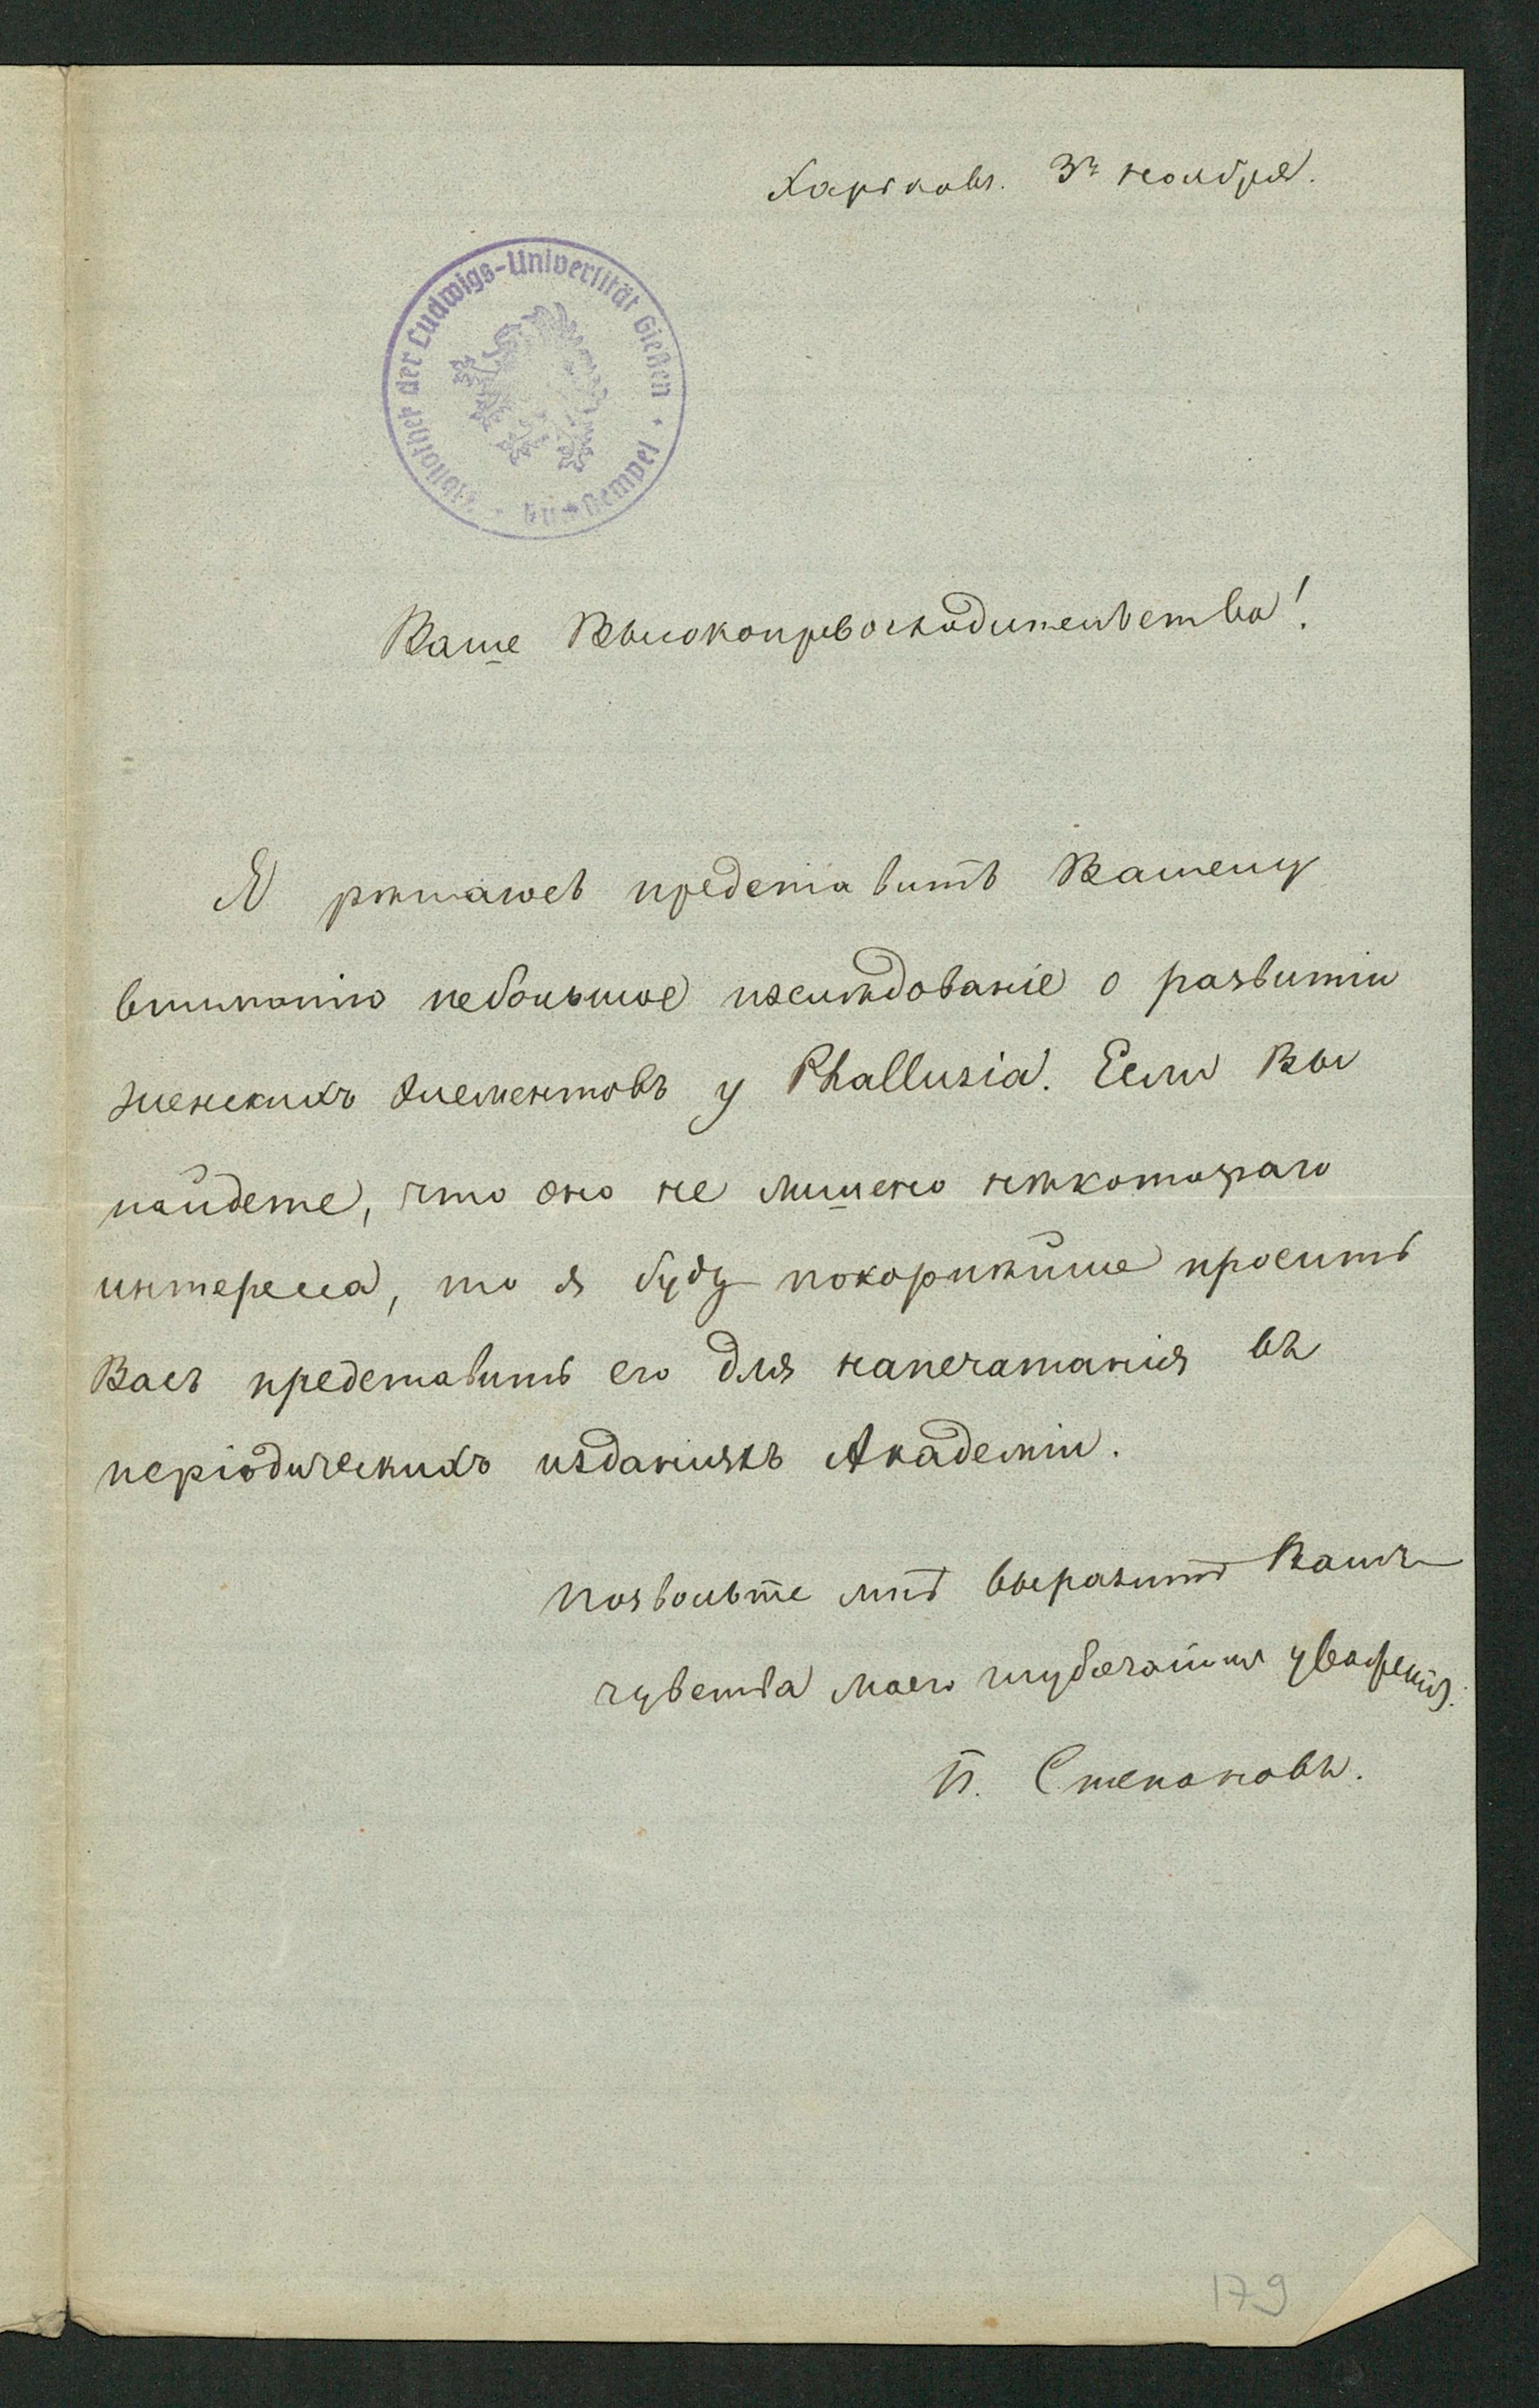 Харьковъ. 3го ноября.
Bibliothek der Ludwigs-Universität Gießen
Ваше Высокопревосходительство!
Я рѣшаюсь представить Вашему
вниманію небольшое изслѣдованіе о развитіи
женскихъ элементовъ у Phallusia. Если Вы
найдете, что оно не лишено нѣкотораго
интереса, то я буду покорнѣйше просить
Васъ представить его для напечатанія въ
періодическихъ изданіяхъ Академіи.
Позвольте мнѣ выразить Вамъ
чувства моего глубочайшаго уваженія.
П. Степановъ.
179